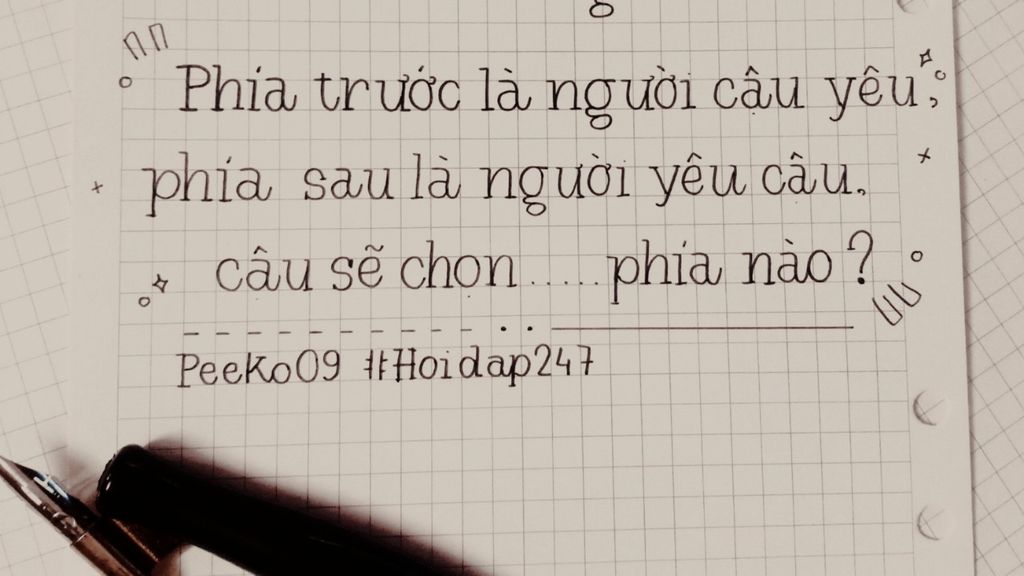 Phía trước là người cậu yêu,
phía sau là người yêu câu.
câu sẽ chọn ..... phía nào?
PeeKo09 #Hoidap247